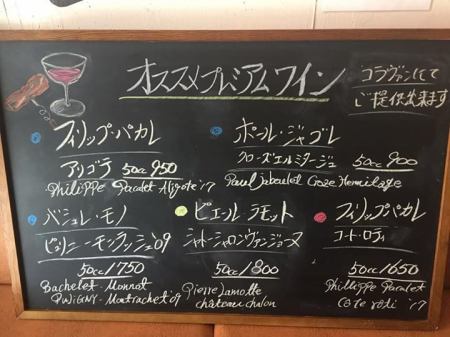 オススメプレミアムワイン
コラヴァンにて
ご提供出来ます
フィリップ・パカレ
アリゴテ 50cc 950
Philippe Pacalet Aligote '17
ポール・ジャブレ
クローズエルミタージュ 50cc 900
Paul Jaboulet Croze Hermitage
バシュレ・モノ
ピュリニー・モンラッシェ09
50cc/1750
Bachelet-Monnot
PULIGNY-Montrachet '09
ピエール・ラモット
シャトーシャロンヴァンジョーヌ
50cc/1800
Pierre Lamotte
château chalon
フィリップパカレ
コート・ロティ
50cc/1650
Phillippe Pacalet
Cote rôti '17